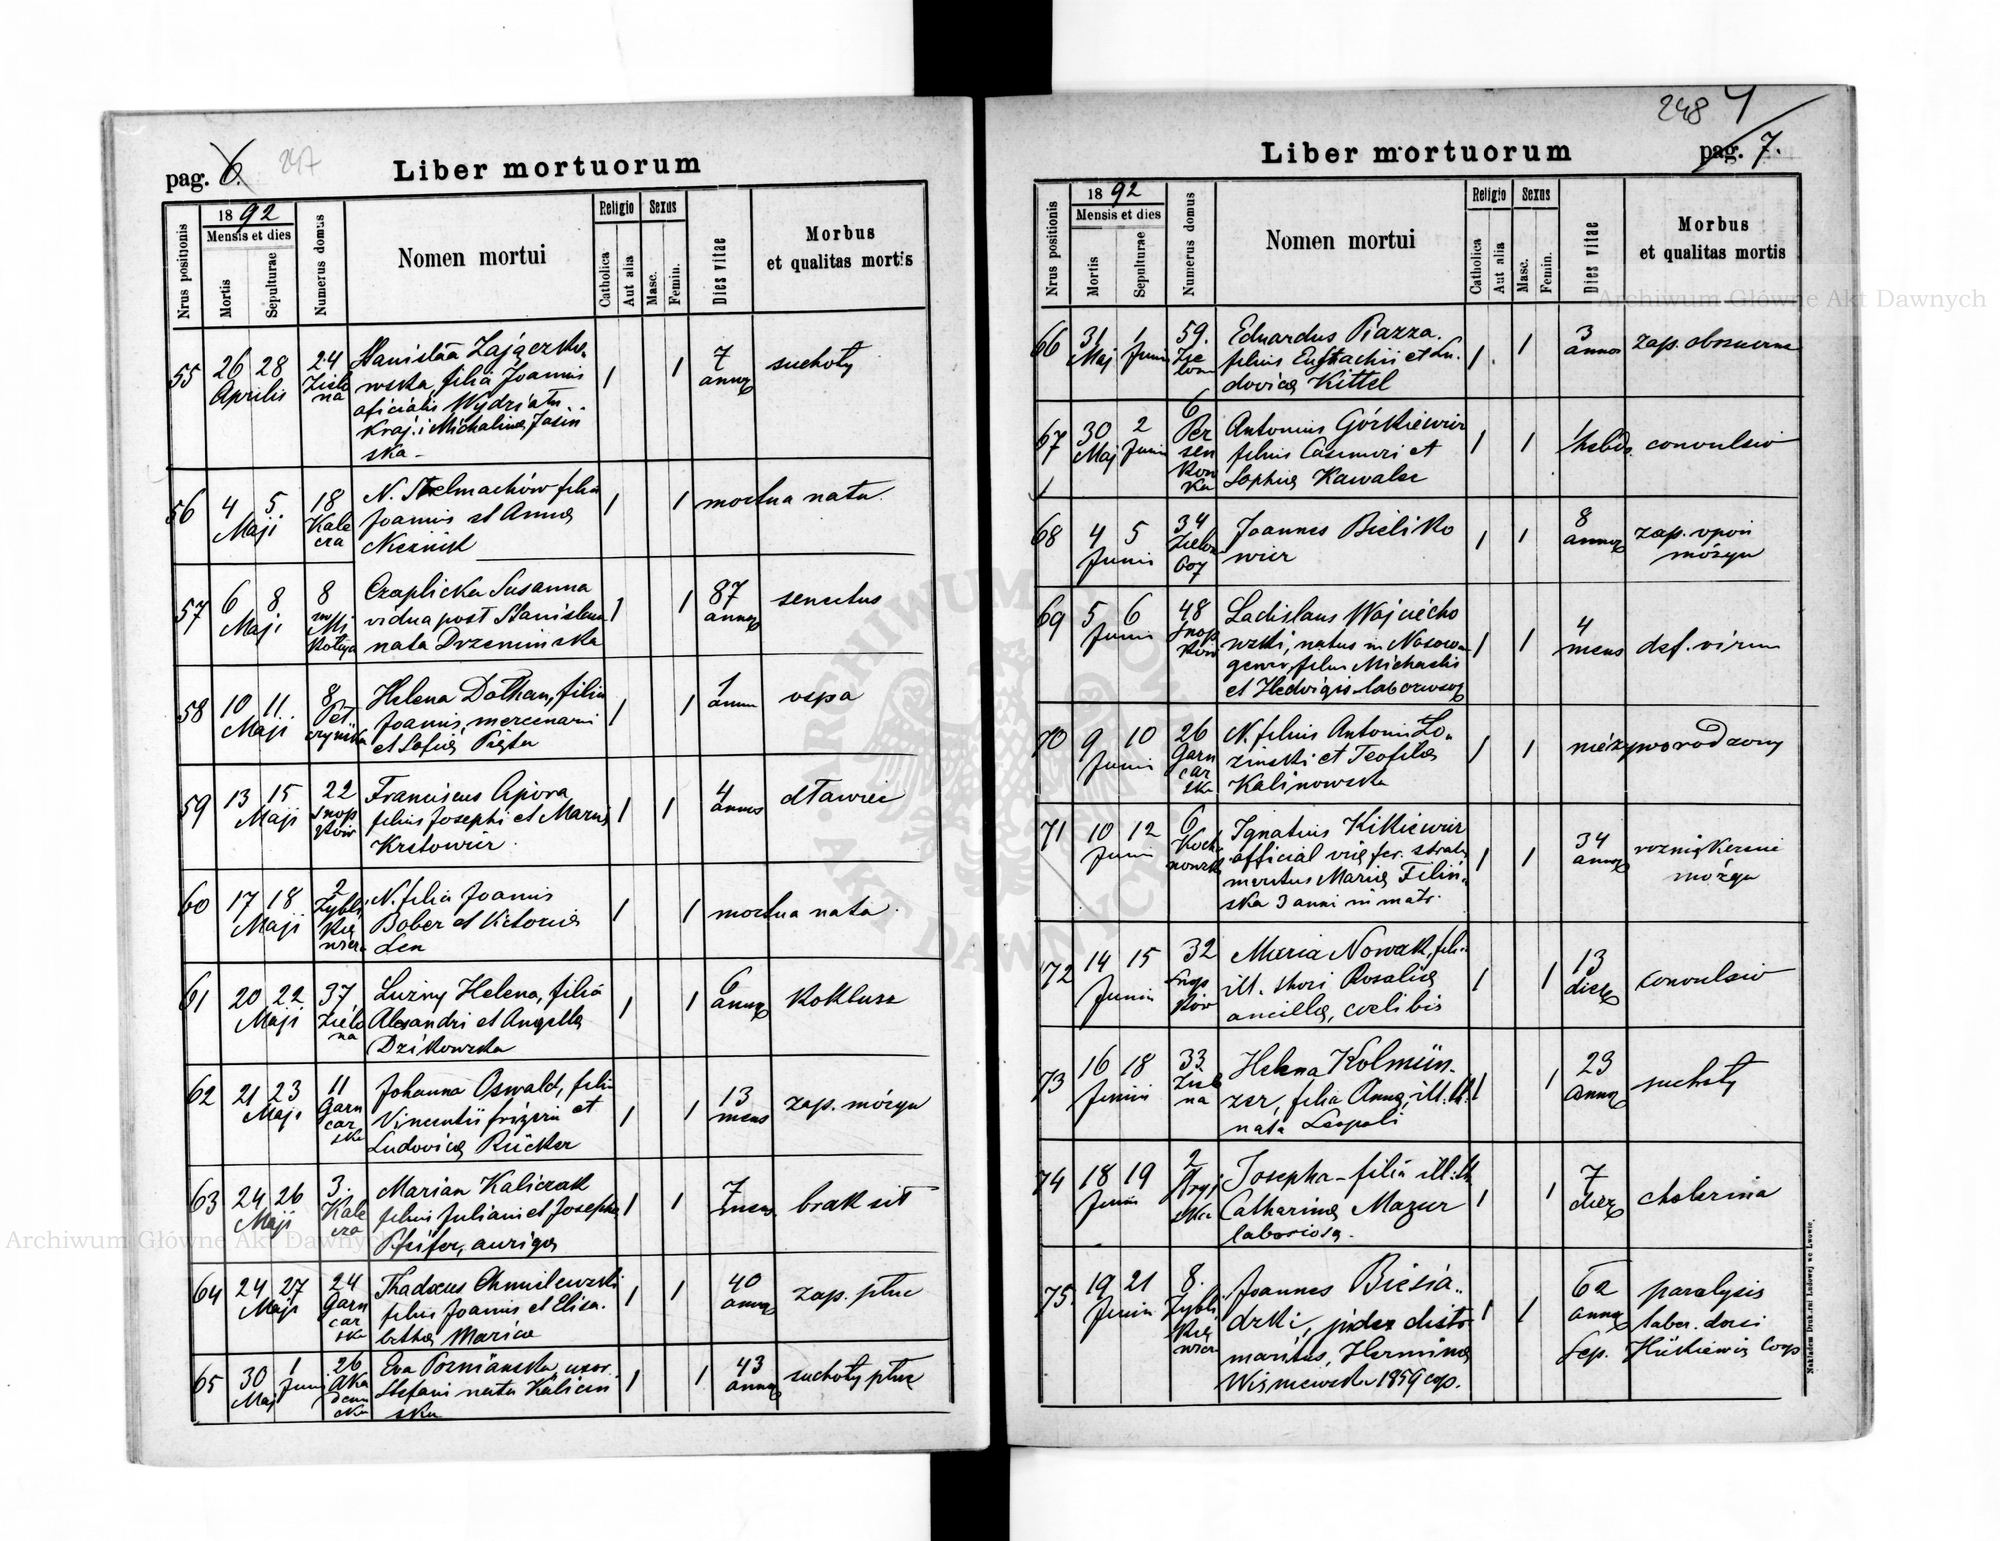 pag. 6.
247
Liber mortuorum
Nrus positionis
1892
Mensis et dies
Mortis
Sepulturae
Numerus domus
Nomen mortui
Religio
Catholica
Aut alia
Sexus
Masc.
Femin.
Dies vitae
Morbus
et qualitas mortis
55
26 28
Aprilis
24
Zielo
na
Stanisłaa Zajączko-
wska, filia Joannis
oficialis Wydziału
Kraj. i Michalina Jasiń
ska -
1 1
7
annor
suchoty
56
4 5.
Maji
18
Kale
cza
N. Stelmachów filia
Joannis et Anna
1 1
mortua nata.
57
6 8
Maji
8
Czaplicka Susanna
vidua post Stanislaum
nata Drzemińska
1 1
87
annor
senectus
58
10 11
Maji
8
Peł
czyńska
Helena Dolhan, filia
Joannis mercenarii
et Sofia Pięta
1 1
1
annum
ospa
59
13 15
Maji
22
Snop
ków
Franciscus Apora
filius Josephi et Maria
Kretowicz
1 1
4
annos
dławiec
60
17 18
Maji
2
Zybli
kie
wicza
N. filia Joannis
Bober et Victoria
Len
1 1
mortua nata.
61
20 22
Maji
37
Zielo
na
Luzny Helena, filia
Alexandri et Angella
Dzikowska
1 1
6
annor
Koklusz
62
21 23
Maji
11
Garn
car
ska
Johanna Oswald, filia
Vincentii frizera et
Ludovica Rücker
1 1
13
mens
zap. mózgu
63
24 26
Maji
3.
Kale
cza
Marian Kaliczak
filius Juliani et Josepha
Pfeifer, auriga
1 1
7
mens.
brak sił
64
24 27
Maji
24
Garn
car
ska
Thadaeus Chmielewski
filius Joannis et Elisa-
betha Marica
1 1
40
annor
zap. płuc
65
30 1
Maj Juni
26
Aka
demi
cka
Eva Poznańska, uxor
Stefani nata Kalicin
ska
1 1
43
annor
suchoty płuc
248
pag. 7.
Liber mortuorum
Nrus positionis
1892
Mensis et dies
Mortis
Sepulturae
Numerus domus
Nomen mortui
Religio
Catholica
Aut alia
Sexus
Masc.
Femin.
Dies vitae
Morbus
et qualitas mortis
66
31 1
Maj Junii
59.
Zie
lona
Eduardus Piazza.
filius Eustachii et Lu-
dovica Kittel
1 1
3
annos
67
30 2
Maj Junii
6
Per
sen
kow
ka
Antonius Górkiewicz
filius Casimiri et
Sophia Kawalec
1 1
1 hebd.
convulsio
68
4 5
Junii
34
Joannes Bieliko
wicz
1 1
8
annor
zap. opon
mózgu
69
5 6
Junii
48
Snop
ków
Ladislaus Wojciecho
wski, natus in
filius Michaelis
et Hedvigis
1 1
4
mens
def. virium
70
9 10
Junii
26
Garn
car
ska
N. filius Antonii Ło-
ziński et Teofila
Kalinowska
1 1
nieżyworodzony
71
10 12
Junii
6
Koch
nowski
Ignatius Kitkiewicz
official
maritus Maria Filiń-
ska 3 anni in matr.
1 1
34
annor
rozmiękczenie
mózgu
72
14 15
Junii
32
Snop
ków
Maria Nowak, fili-
ill. thori Rosalia
ancilla, coelibis
1 1
13
dier
convulsio
73
16 18
Junii
33.
Ziel
na
Helena Kolmün-
zer, filia Anna, ill. th.
nata Leopoli
1 1
23
Annor
suchoty
74
18 19
Junii
2
Stryj
ska
Josepha - filia ill. th
Catharina Mazur
laboriosa.
1 1
7
dier
cholerina
75.
19 21
Junii
8.
Zybli
kie
wicza
Joannes Biesia-
dzki,
maritus, Hermina
Wiśniewska 1859 cop.
1 1
62
annor
paralysis
Sep. Hickiewicz Coop
Nakładem Drukarni Ludowej we Lwowie.
Archiwum Główne Akt Dawnych
Archiwum Główne Akt Dawnych